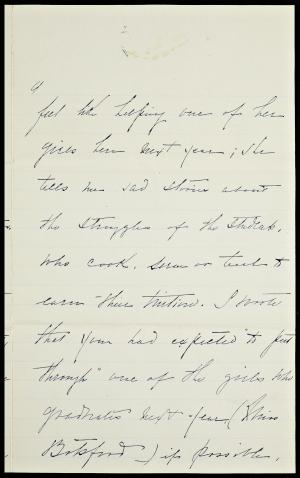 feel like helping one of her
girls here next year; she
tells me sad stories about
the struggles of the students,
who cook, serve or teach to
earn their tuition. I wrote
that you had expected "to put
through" one of the girls who
graduates next year (Miss
Botsford) if possible,